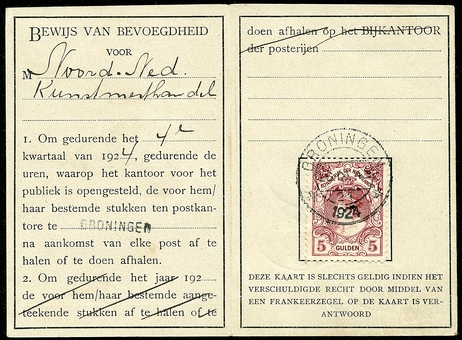 BEWIJS VAN BEVOEGDHEID
VOOR
M Noord-Ned.
Kunstmesthandel
1. Om gedurende het 4e
kwartaal van 1924, gedurende de
uren, waarop het kantoor voor het
publiek is opengesteld, de voor hem/
haar bestemde stukken ten postkan-
tore te GRONINGEN
na aankomst van elke post af te
halen of te doen afhalen.
2. Om gedurende het jaar 192
de voor hem/haar bestemde aange-
teekende stukken af te halen of te
doen afhalen op het BIJKANTOOR
der posterijen
GRONINGEN
1924
5 GULDEN 5
DEZE KAART IS SLECHTS GELDIG INDIEN HET
VERSCHULDIGDE RECHT DOOR MIDDEL VAN
EEN FRANKEERZEGEL OP DE KAART IS VER-
ANTWOORD